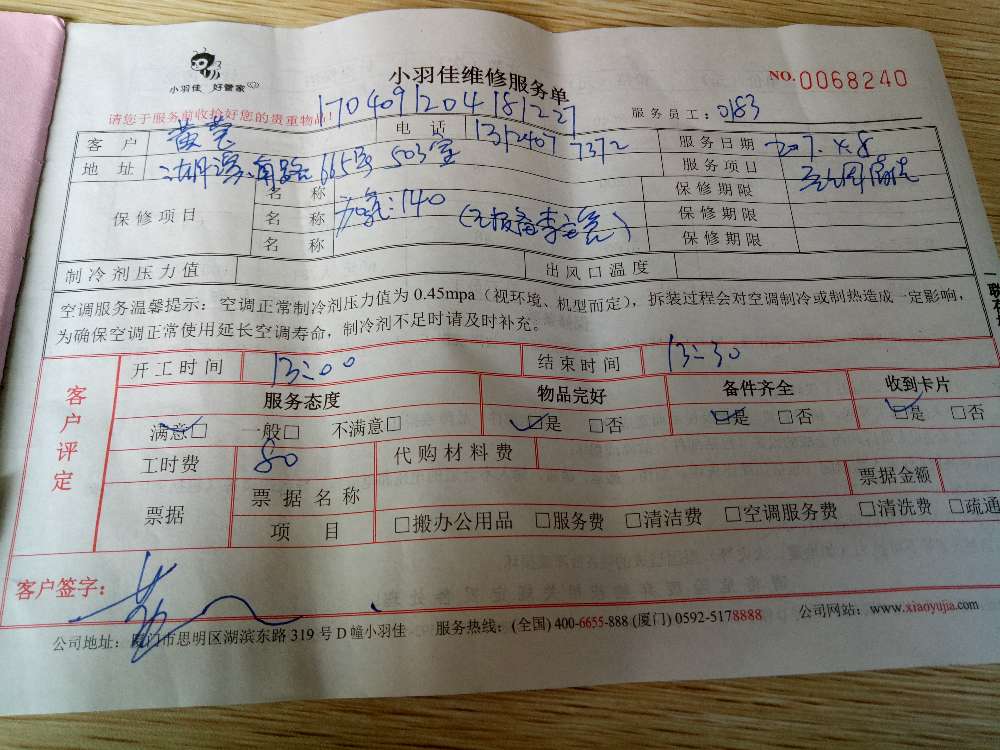 小羽佳 好管家
小羽佳维修服务单
NO.0068240
请您于服务前收拾好您的贵重物品!
17040912041812 27
服务员工：0183
客户 黄莹 电话 服务日期
地址 湖滨南路665号503室 服务项目
保修项目 名称 加氟：140 保修期限
名称 保修期限
名称 保修期限
制冷剂压力值 出风口温度
空调服务温馨提示：空调正常制冷剂压力值为 0.45mpa（视环境、机型而定），拆装过程会对空调制冷或制热造成一定影响，
为确保空调正常使用延长空调寿命，制冷剂不足时请及时补充。
客户评定
开工时间 13:00 结束时间 13:30
服务态度 物品完好 备件齐全 收到卡片
满意□ 一般□ 不满意□ □是 □否 □是 □否 □是 □否
工时费 80 代购材料费
票据 票据名称 票据金额
项目 □搬办公用品 □服务费 □清洁费 □空调服务费 □清洗费 □疏通
客户签字：
公司地址：厦门市思明区湖滨东路 319 号 D 幢小羽佳 服务热线：(全国) 400-6655-888 (厦门) 0592-5178888 公司网站：www.xiaoyujia.com